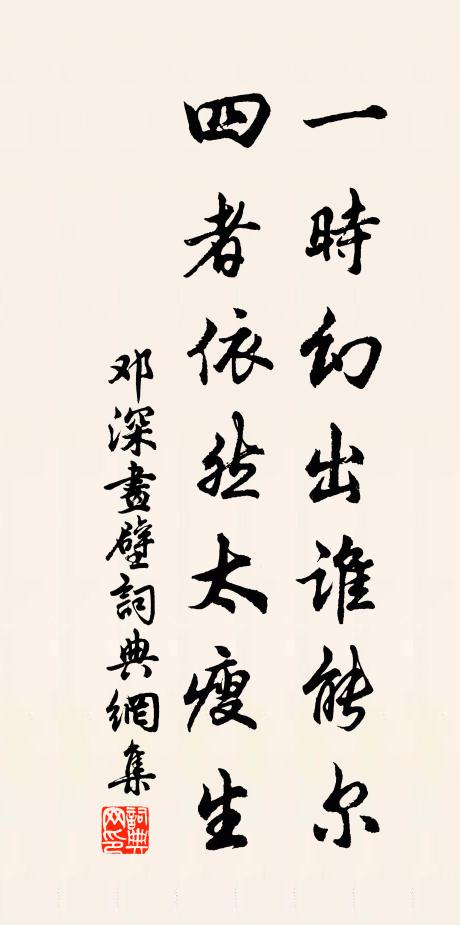 一時幻出誰能尔
四者依然太瘦生
邓深畫壁詞典網集
詞典网印